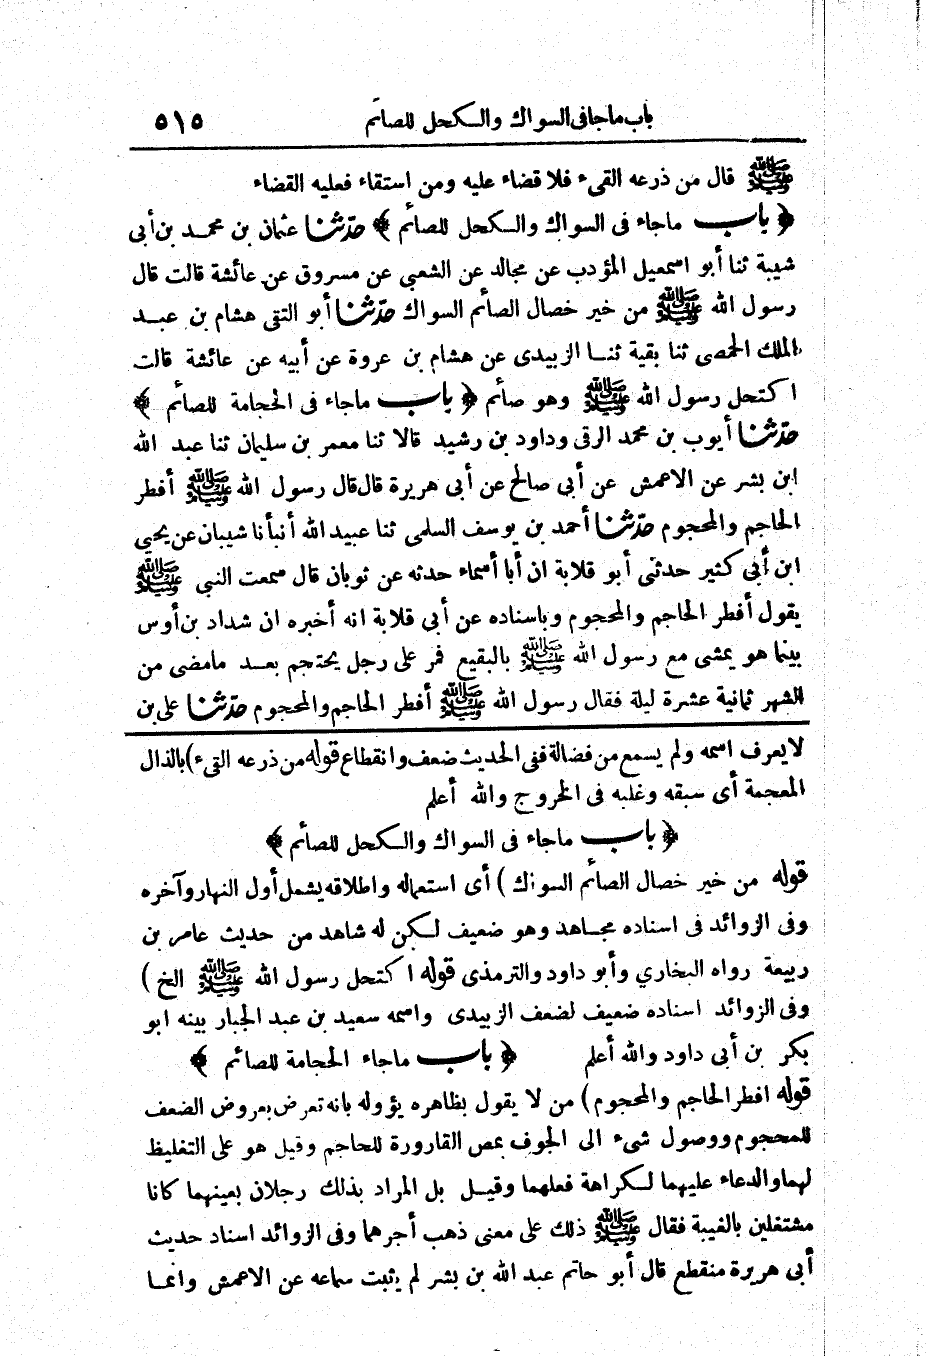 باب ماجا فى السواك والكحل للصائم ٥١٥
ﷺ قال من ذرعه القىء فلا قضاء عليه ومن استقاء فعليه القضاء
﴿ باب ماجاء فى السواك والكحل للصائم ﴾ حدّثنا عثمان بن محمد بن أبى
شيبة ثنا أبو اسمعيل المؤدب عن مجالد عن الشعبي عن مسروق عن عائشة قالت قال
رسول الله ﷺ من خير خصال الصائم السواك حدّثنا أبو التقى هشام بن عبد
الملك الحمصى ثنا بقية ثنا الزبيدى عن هشام بن عروة عن أبيه عن عائشة قالت
اكتحل رسول الله ﷺ وهو صائم ﴿ باب ماجاء فى الحجامة للصائم ﴾
حدّثنا أيوب بن محمد الرقى وداود بن رشيد قالا ثنا معمر بن سليمان ثنا عبد الله
ابن بشر عن الاعمش عن أبى صالح عن أبى هريرة قال قال رسول الله ﷺ أفطر
الحاجم والمحجوم حدّثنا أحمد بن يوسف السلمى ثنا عبيد الله أنبأنا شيبان عن يحيى
ابن أبى كثير حدثنى أبو قلابة ان أبا أسماء حدثه عن ثوبان قال سمعت النبي ﷺ
يقول أفطر الحاجم والمحجوم وباسناده عن أبى قلابة انه أخبره ان شداد بن أوس
بينما هو يمشى مع رسول الله ﷺ بالبقيع فمر على رجل يحتجم بعد مامضى من
الشهر ثمانية عشرة ليلة فقال رسول الله ﷺ أفطر الحاجم والمحجوم حدّثنا على بن
لايعرف اسمه ولم يسمع من فضالة ففى الحديث ضعف وانقطاع قوله من ذرعه القىء) بالذال
المعجمة أى سبقه وغلبه فى الخروج والله أعلم
﴿ باب ماجاء فى السواك والكحل للصائم ﴾
قوله من خير خصال الصائم السواك) أى استعماله واطلاقه يشمل أول النهار وآخره
وفى الزوائد فى اسناده مجاهد وهو ضعيف لكن له شاهد من حديث عامر بن
ربيعة رواه البخاري وأبو داود والترمذى قوله اكتحل رسول الله ﷺ الخ)
وفى الزوائد اسناده ضعيف لضعف الزبيدى واسمه سعيد بن عبد الجبار بينه ابو
بكر بن أبى داود والله أعلم ﴿ باب ماجاء الحجامة للصائم ﴾
قوله افطر الحاجم والمحجوم) من لا يقول بظاهره يؤوله بانه تعرض بعروض الضعف
للمحجوم ووصول شىء الى الجوف بمص القارورة للحاجم وقيل هو على التغليظ
لهما والدعاء عليهما لكراهة فعلهما وقيل بل المراد بذلك رجلان بعينهما كانا
مشتغلين بالغيبة فقال ﷺ ذلك على معنى ذهب أجرهما وفى الزوائد اسناد حديث
أبى هريرة منقطع قال أبو حاتم عبد الله بن بشر لم يثبت سماعه عن الاعمش وانما